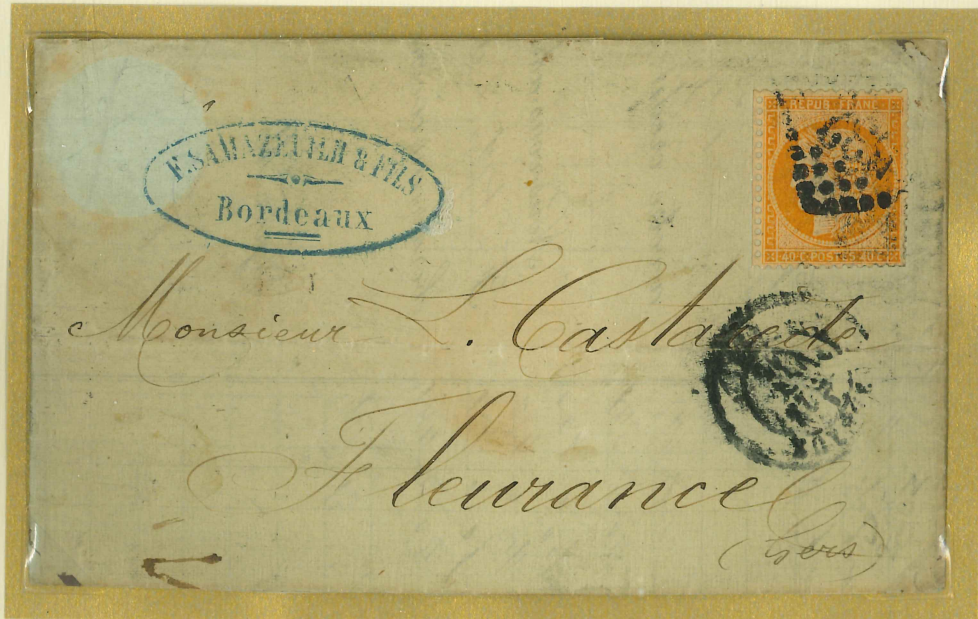 F. SAMAZEUILH & FILS
Bordeaux
REPUB. FRANC.
40·C·POSTES·40·C
Monsieur L. Castarede
Fleurance
(Gers)